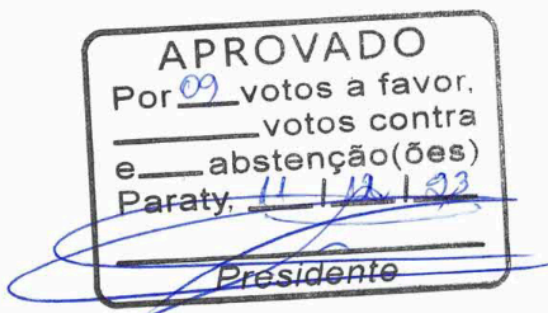 APROVADO
Por 09 votos a favor,
______ votos contra
e____abstenção(ões)
Paraty, 11 / 12 / 23
Presidente